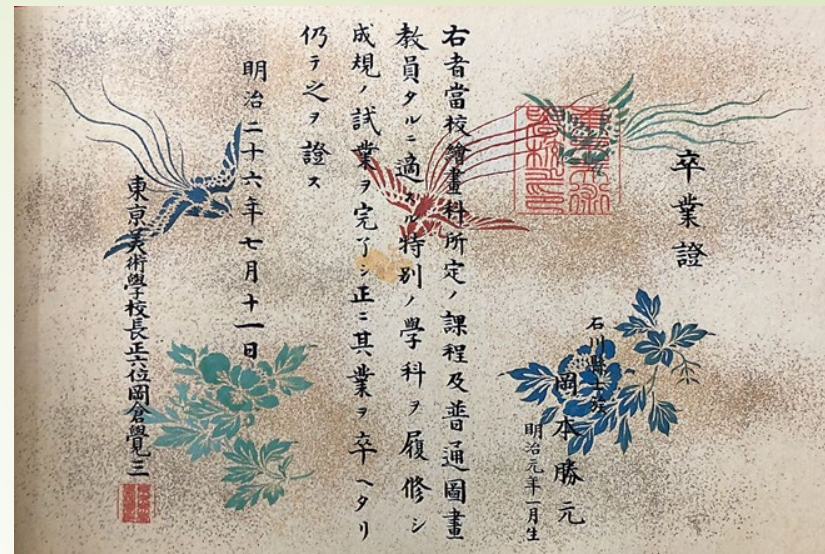 卒業證
石川縣士族
岡本勝元
明治元年一月生
右者當校繪畫科所定ノ課程及普通圖畫
教員タルニ適スル特別ノ學科ヲ履修シ
成規ノ試業ヲ完了シ正ニ其業ヲ卒ヘタリ
仍テ之ヲ證ス
明治二十六年七月十一日
東京美術學校長正六位岡倉覺三